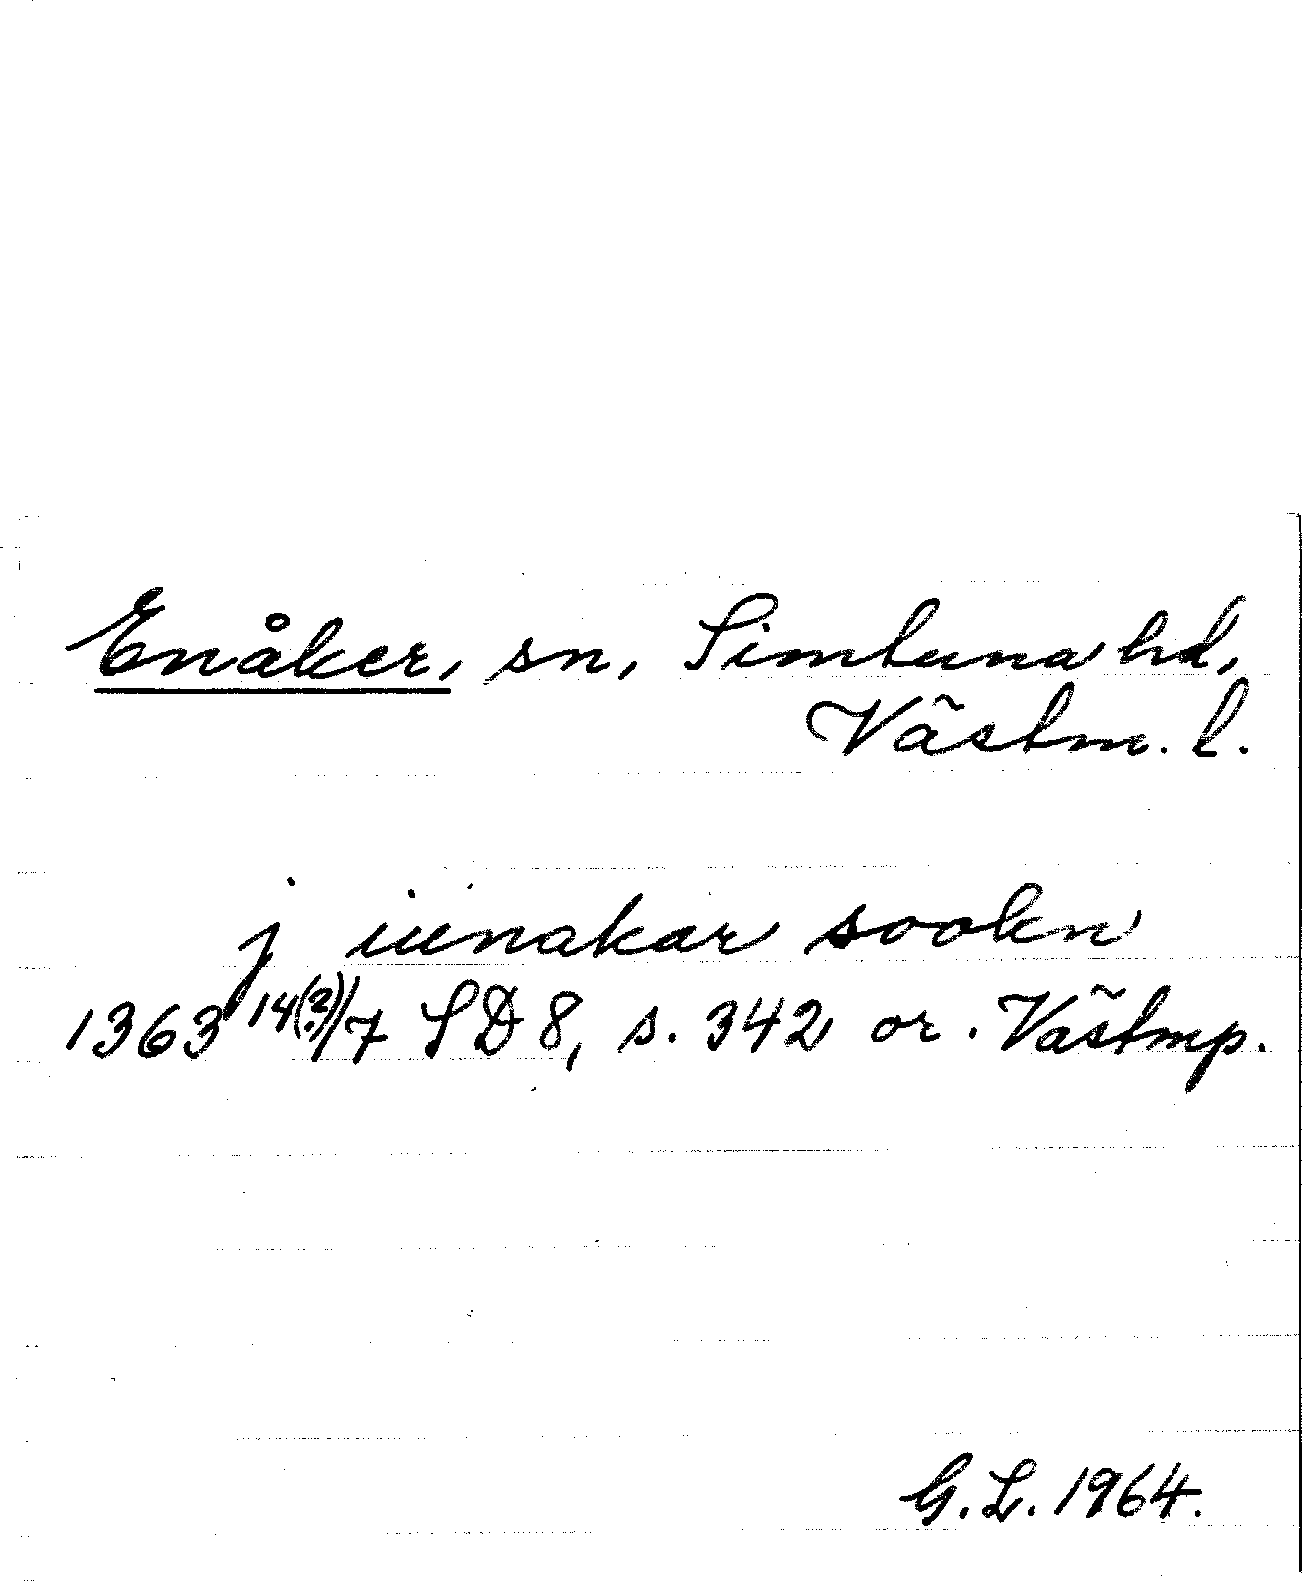 Enåker, sn, Simtuna hd,
Västm. l.
j iu̇enakar sookn
1363 14(?)/7 SD 8, s. 342 or. Västmp.
G.L. 1964.